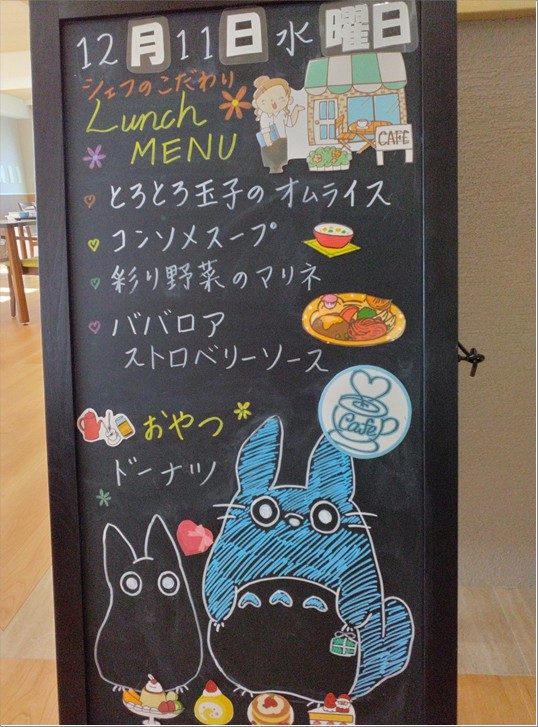 12月11日 水曜日
シェフのこだわり
Lunch
MENU
CAFE
とろとろ玉子のオムライス
コンソメスープ
彩り野菜のマリネ
ババロア
ストロベリーソース
Cafe
おやつ
ドーナツ